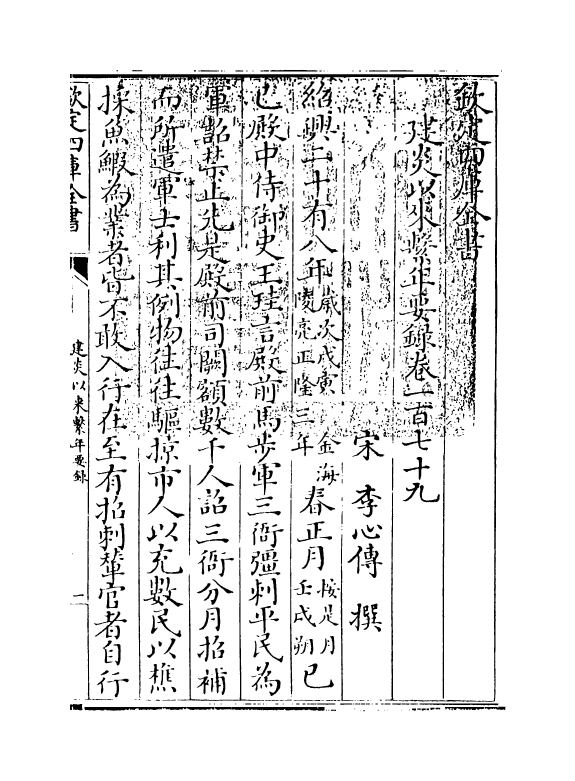 欽定四庫全書
建炎以來繫年要録卷一百七十九
宋 李心傳 撰
紹興二十有八年歲次戊寅金海陵亮正隆三年春正月按是月壬戌朔己
巳殿中侍御史王珪言殿前馬步軍三衙彊刺平民為
軍詔禁止先是殿前司闕額數千人詔三衙分月招補
而所遣軍士利其例物往往驅掠市人以充數民以樵
採魚鰕為業者皆不敢入行在至有招刺輦官者自行
欽定四庫全書
建炎以來繫年要録
一